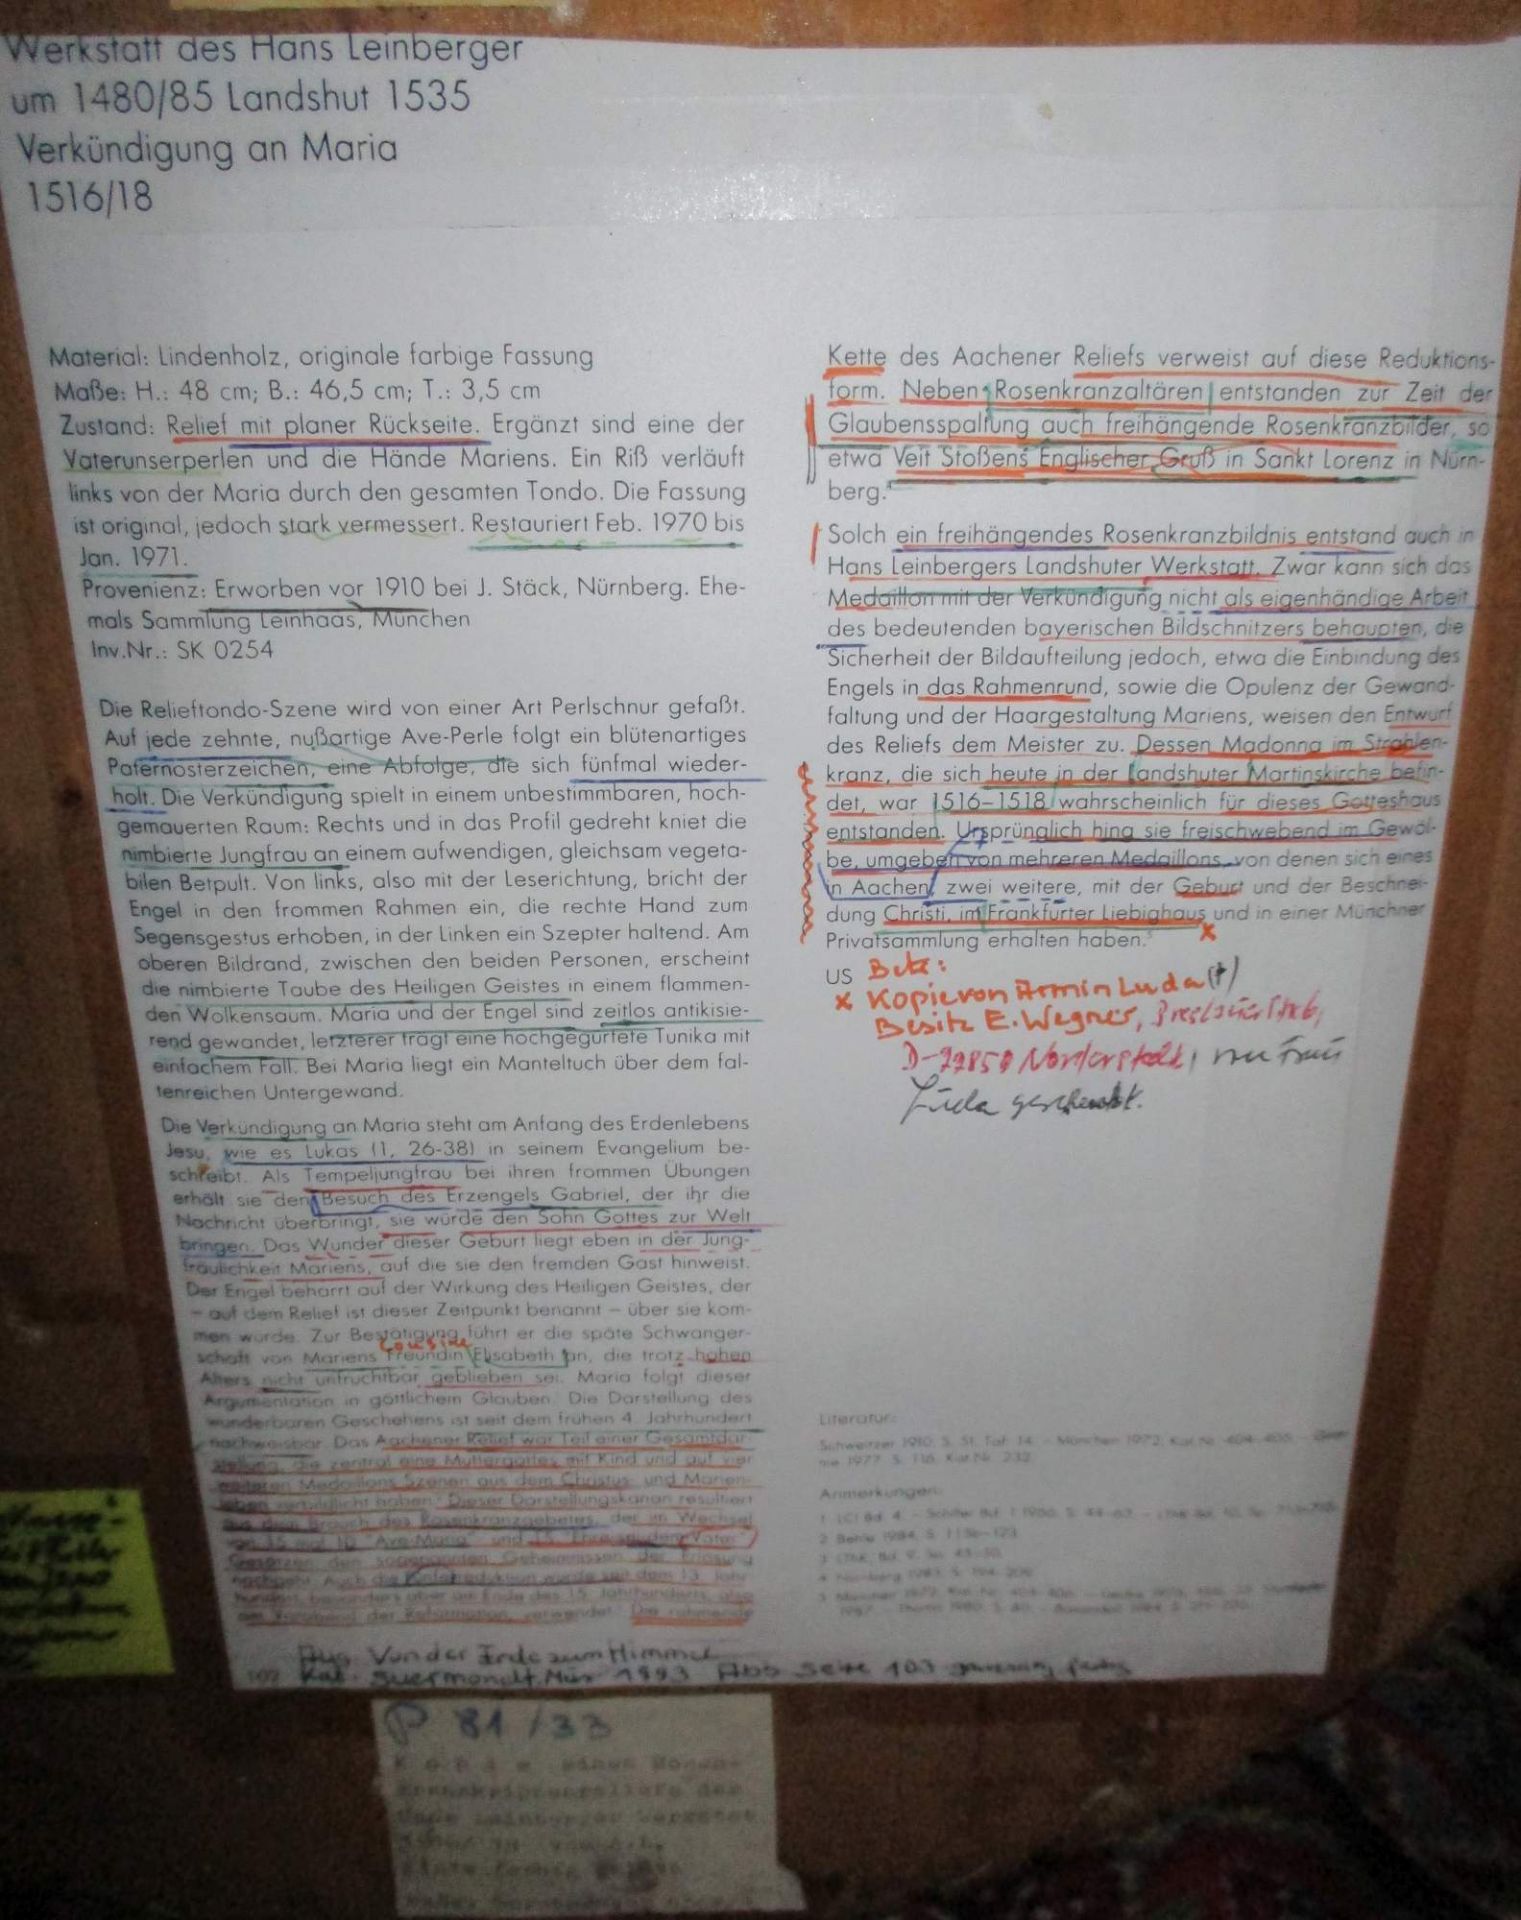 Werkstatt des Hans Leinberger
um 1480/85 Landshut 1535
Verkündigung an Maria
1516/18
Material: Lindenholz, originale farbige Fassung
Maße: H.: 48 cm; B.: 46,5 cm; T.: 3,5 cm
Zustand: Relief mit planer Rückseite. Ergänzt sind eine der
Vaterunserperlen und die Hände Mariens. Ein Riß verläuft
links von der Maria durch den gesamten Tondo. Die Fassung
ist original, jedoch stark vermessert. Restauriert Feb. 1970 bis
Jan. 1971.
Provenienz: Erworben vor 1910 bei J. Stäck, Nürnberg. Ehe-
mals Sammlung Leinhaas, München
Inv.Nr.: SK 0254
Die Relieftondo-Szene wird von einer Art Perlschnur gefaßt.
Auf jede zehnte, nußartige Ave-Perle folgt ein blütenartiges
Paternosterzeichen, eine Abfolge, die sich fünfmal wieder-
holt. Die Verkündigung spielt in einem unbestimmbaren, hoch-
gemauerten Raum: Rechts und in das Profil gedreht kniet die
nimbierte Jungfrau an einem aufwendigen, gleichsam vegeta-
bilen Betpult. Von links, also mit der Leserichtung, bricht der
Engel in den frommen Rahmen ein, die rechte Hand zum
Segensgestus erhoben, in der Linken ein Szepter haltend. Am
oberen Bildrand, zwischen den beiden Personen, erscheint
die nimbierte Taube des Heiligen Geistes in einem flammen-
den Wolkensaum. Maria und der Engel sind zeitlos antikisie-
rend gewandet, letzterer trägt eine hochgegürtete Tunika mit
einfachem Fall. Bei Maria liegt ein Manteltuch über dem fal-
tenreichen Untergewand.
Die Verkündigung an Maria steht am Anfang des Erdenlebens
Jesu, wie es Lukas (1, 26-38) in seinem Evangelium be-
schreibt. Als Tempeljungfrau bei ihren frommen Übungen
erhält sie den Besuch des Erzengels Gabriel, der ihr die
Nachricht überbringt, sie würde den Sohn Gottes zur Welt
bringen. Das Wunder dieser Geburt liegt eben in der Jung-
fräulichkeit Mariens, auf die sie den fremden Gast hinweist.
Der Engel beharrt auf der Wirkung des Heiligen Geistes, der
– auf dem Relief ist dieser Zeitpunkt benannt – über sie kom-
men würde. Zur Bestätigung führt er die späte Schwanger-
Cousine
schaft von Mariens Freundin Elisabeth an, die trotz hohen
Alters nicht unfruchtbar geblieben sei. Maria folgt dieser
Argumentation in göttlichem Glauben. Die Darstellung des
wunderbaren Geschehens ist seit dem frühen 4. Jahrhundert
nachweisbar. Das Aachener Relief war Teil einer Gesamtdar-
stellung, die zentral eine Muttergottes mit Kind und auf vier
weiteren Medaillons Szenen aus dem Christus- und Marien-
leben verbildlicht haben. Dieser Darstellungskanon resultiert
aus dem Brauch des Rosenkranzgebetes, der im Wechsel
von 15 mal 10 "Ave-Maria" und 15 Vater"
Gesätzen den sogenannten Geheimnissen der Erlösung
nachgeht. Auch die wurde seit dem 13. Jahr-
hundert, besonders aber am Ende des 15. Jahrhunderts, also
am Vorabend der Reformation, verwendet. Die rahmende
Kette des Aachener Reliefs verweist auf diese Reduktions-
form. Neben Rosenkranzaltären entstanden zur Zeit der
Glaubensspaltung auch freihängende Rosenkranzbilder, so
etwa Veit Stoßens Englischer Gruß in Sankt Lorenz in Nürn-
berg.
Solch ein freihängendes Rosenkranzbildnis entstand auch in
Hans Leinbergers Landshuter Werkstatt. Zwar kann sich das
Medaillon mit der Verkündigung nicht als eigenhändige Arbeit
des bedeutenden bayerischen Bildschnitzers behaupten, die
Sicherheit der Bildaufteilung jedoch, etwa die Einbindung des
Engels in das Rahmenrund, sowie die Opulenz der Gewand-
faltung und der Haargestaltung Mariens, weisen den Entwurf
des Reliefs dem Meister zu. Dessen Madonna im Strahlen-
kranz, die sich heute in der Landshuter Martinskirche befin-
det, war 1516–1518 wahrscheinlich für dieses Gotteshaus
entstanden. Ursprünglich hing sie freischwebend im Gewöl-
be, umgeben von mehreren Medaillons, von denen sich eines
in Aachen, zwei weitere, mit der Geburt und der Beschnei-
dung Christi, im Frankfurter Liebighaus und in einer Münchner
Privatsammlung erhalten haben.
US
x Kopie von Armin Luda (†)
Besitz E. Wegner,
Norderstedt, von Frau
Luda geschenkt.
Literatur:
Schweitzer 1910, S. 51, Taf. 14. – München 1972, Kat.Nr. 404-406. –
1977, S. 116, Kat.Nr. 232.
Anmerkungen:
2 Behle 1984, S. 115–123.
Aus Von der Erde zum Himmel
102 Kat. Suermondt Mus 1993 Abb Seite 103
P 81/33